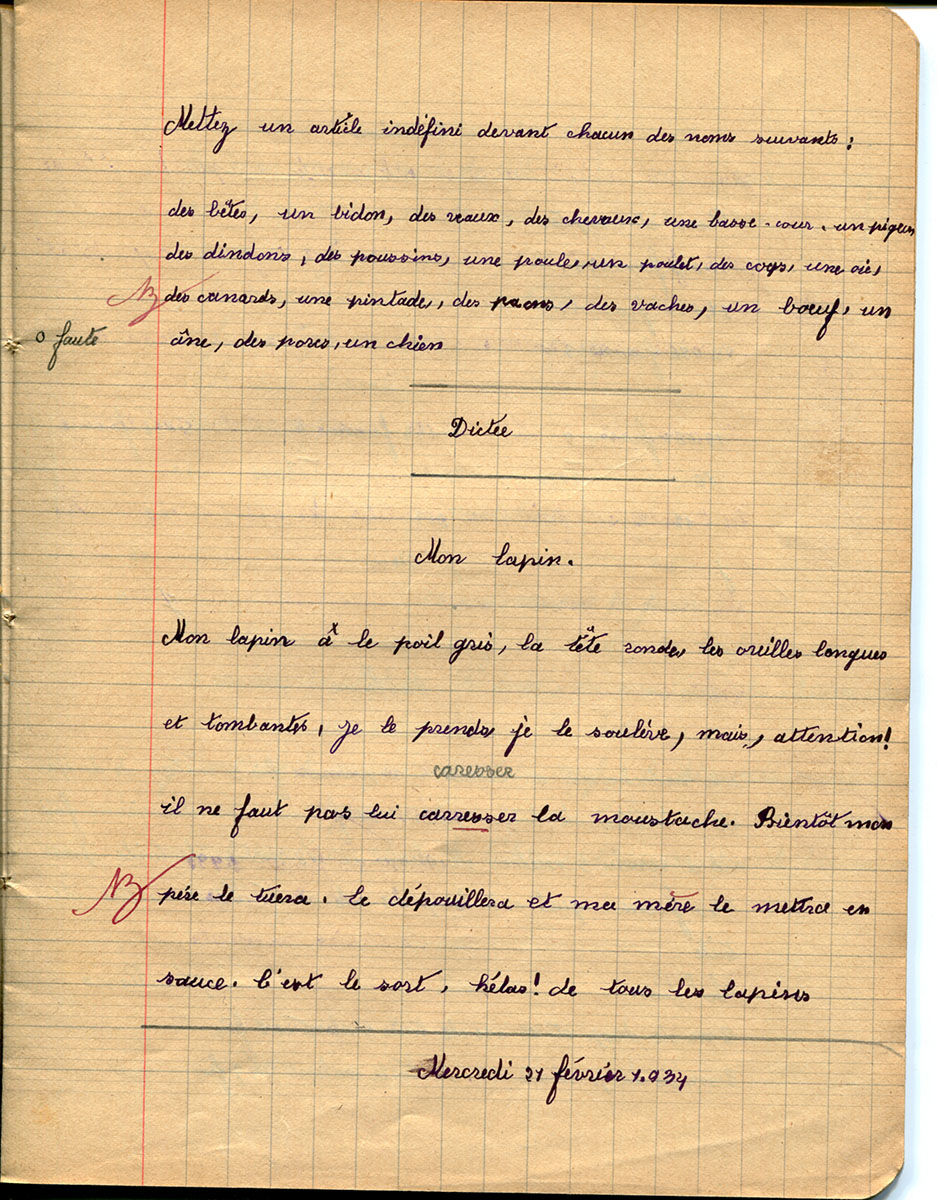 Mettez un article indéfini devant chacun des noms suivants :
des bêtes, un bidon, des veaux, des chevaux, une basse-cour, un pigeon
des dindons, des poussins, une poule, un poulet, des coqs, une oie,
des canards, une pintade, des paons, des vaches, un bœuf, un
0 faute
âne, des porcs, un chien
Dictée
Mon lapin.
Mon lapin a le poil gris, la tête ronde, les oreilles longues
et tombantes, je le prends je le soulève, mais, attention!
caresser
il ne faut pas lui carresser la moustache. Bientôt mon
père le tuera. le dépouillera et ma mère le mettra en
sauce. C'est le sort, hélas! de tous les lapins
Mercredi 21 février 1.934